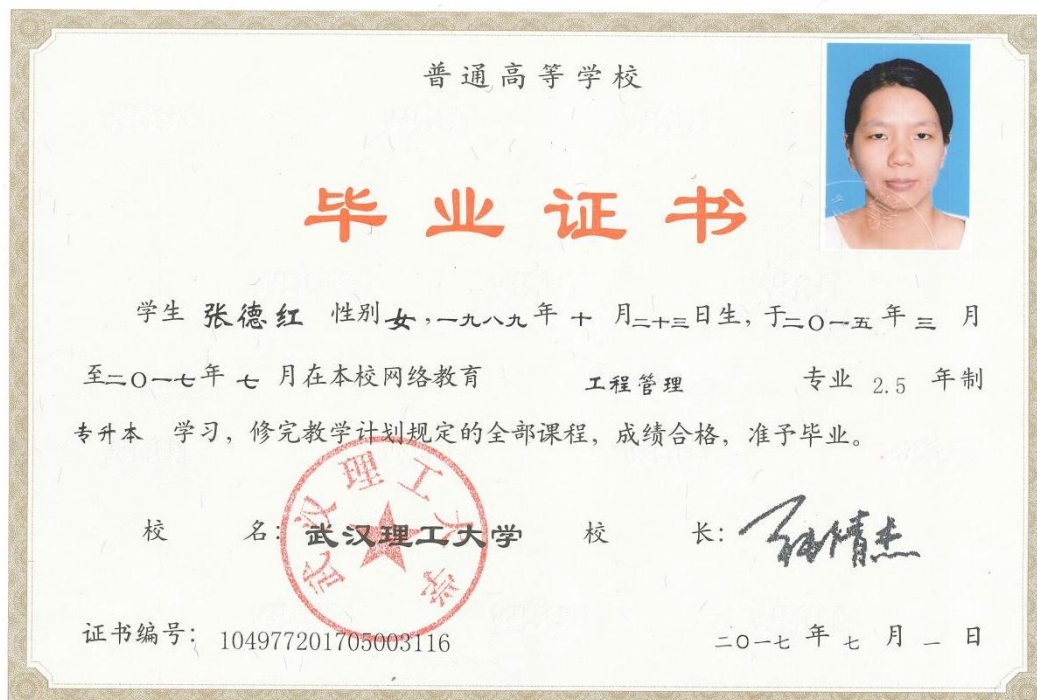 普通高等学校
毕业证书
学生 张德红 性别 女，一九八九年 十 月二十三日生，于二〇一五 年 三 月
至二〇一七年 七 月在本校网络教育 工程管理 专业 2.5 年制
专升本 学习，修完教学计划规定的全部课程，成绩合格，准予毕业。
武汉理工大学
校 名：武汉理工大学 校 长：
证书编号：104977201705003116 二〇一七 年 七 月 一 日